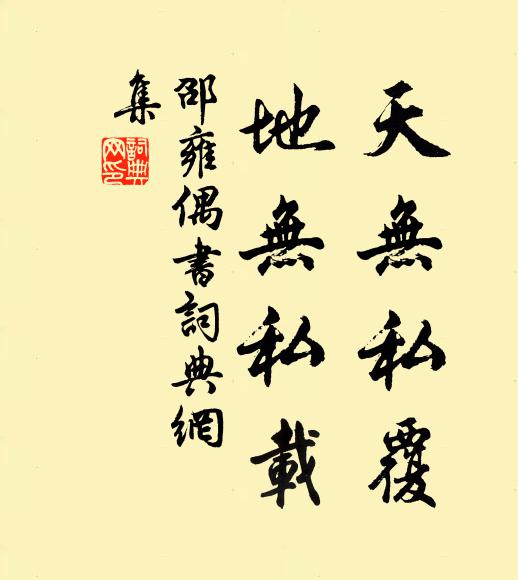 天無私覆
地無私載
邵雍偶書詞典網
集
詞典
网印